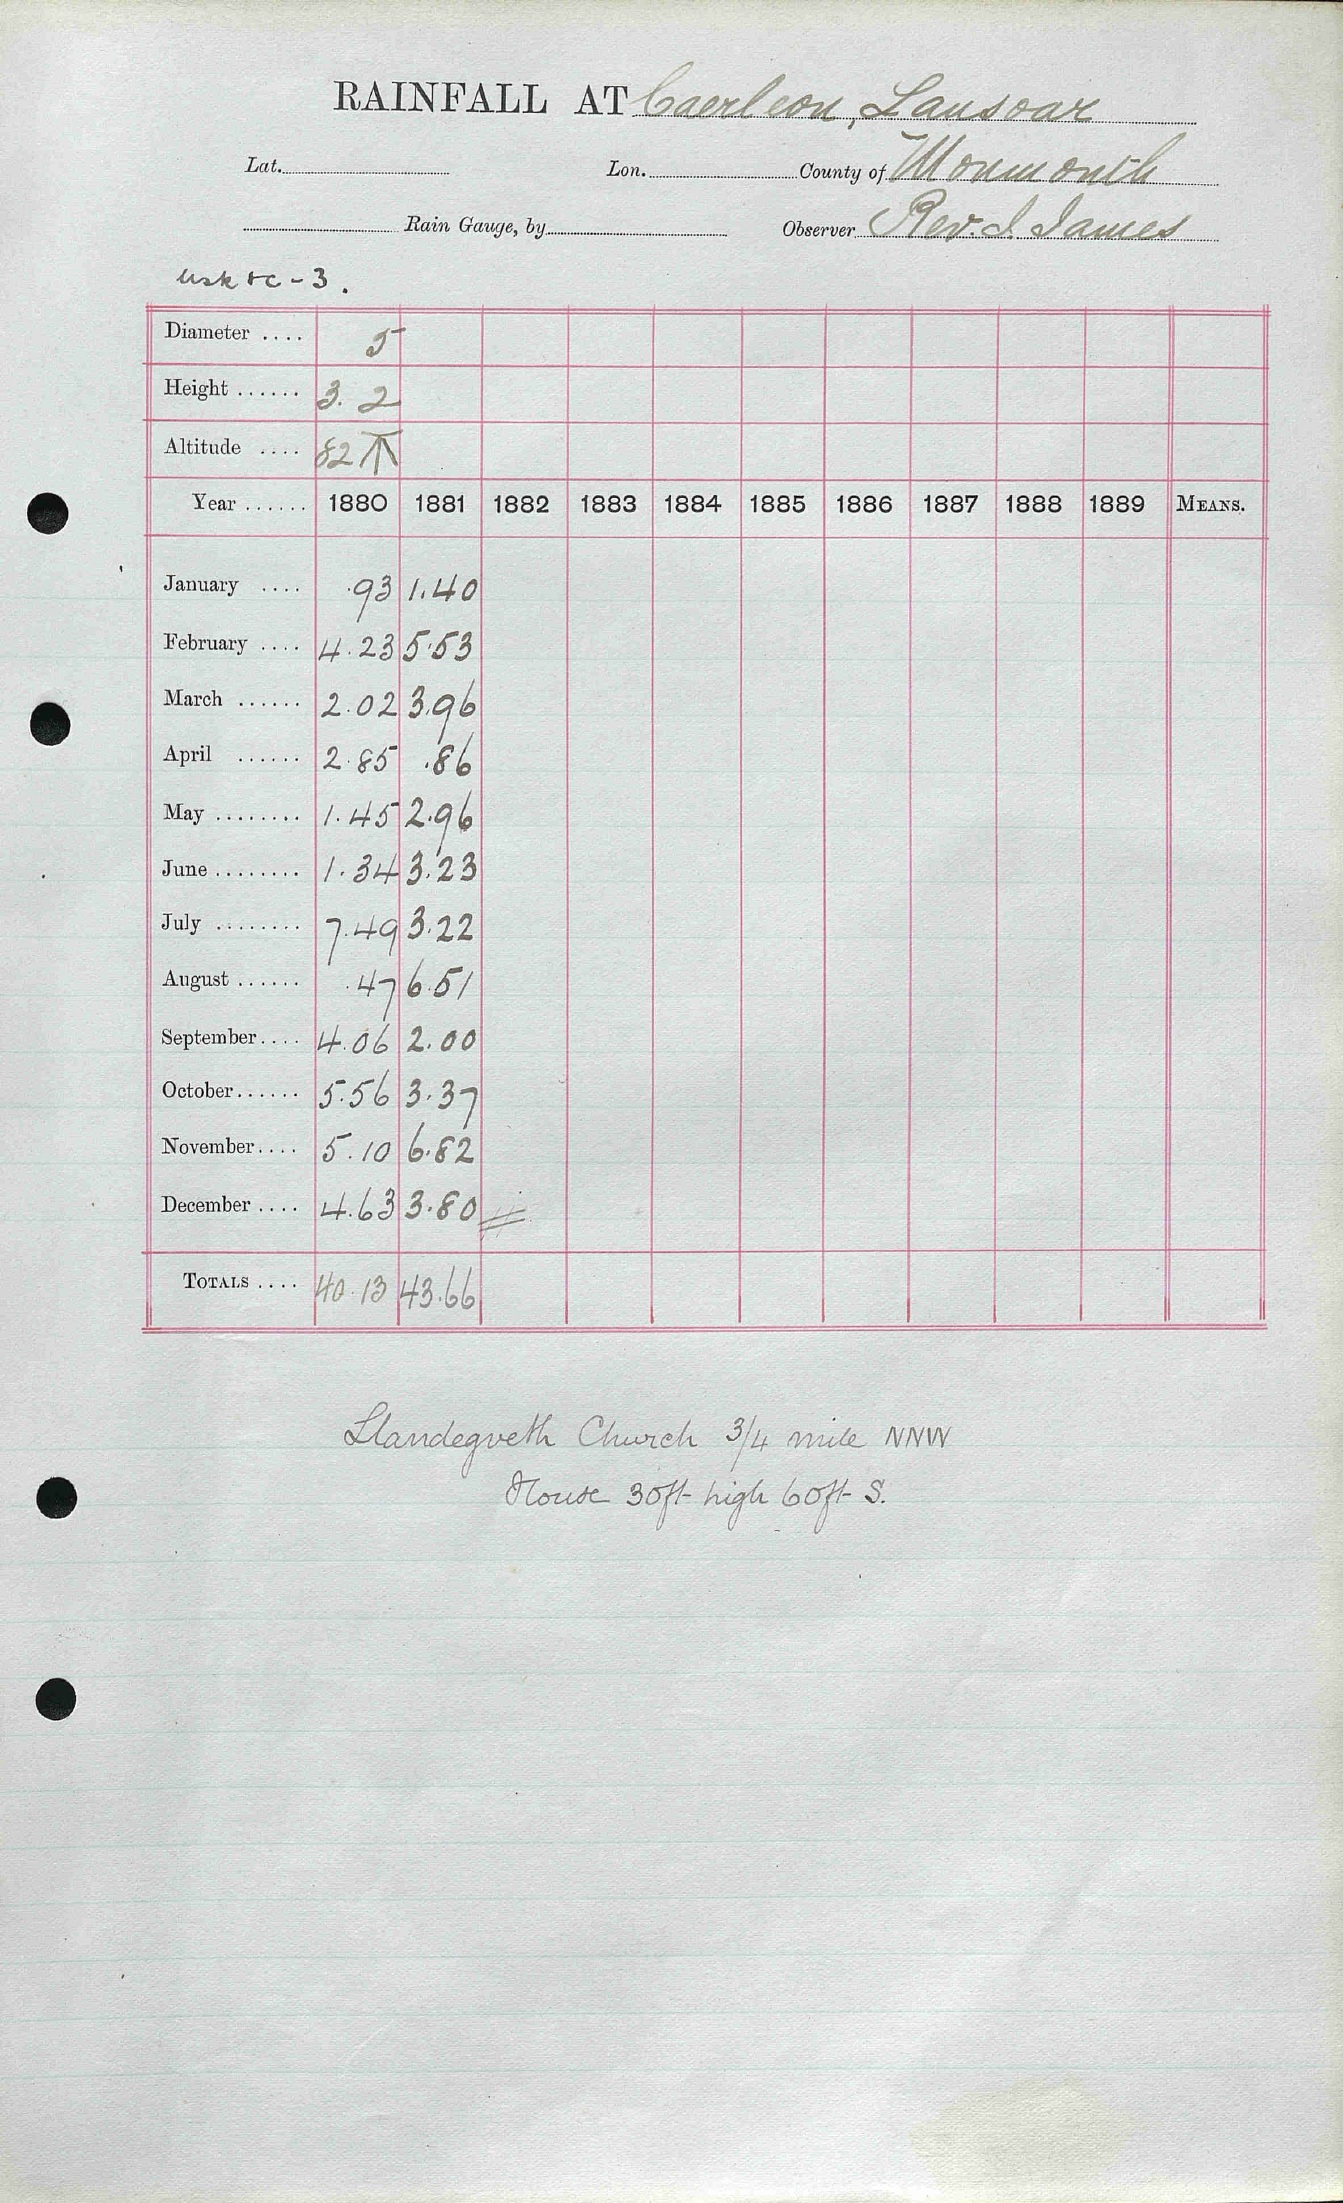 RAINFALL AT Caerleon, Lansoar
Lat. Lon. County of Monmouth
Rain Gauge, by Observer Rev. I. James
Usk &c - 3.
Diameter .... 5
Height ...... 3. 2
Altitude .... 82
Year ...... 1880 1881 1882 1883 1884 1885 1886 1887 1888 1889 MEANS.
January .... .93 1.40
February .... 4.23 5.53
March ...... 2.02 3.96
April ...... 2.85 .86
May ........ 1.45 2.96
June ........ 1.34 3.23
July ........ 7.49 3.22
August ...... .47 6.51
September .... 4.06 2.00
October ...... 5.56 3.37
November .... 5.10 6.82
December .... 4.63 3.80
TOTALS .... 40.13 43.66
Llandegveth Church 3/4 mile NNW
House 30ft high 60ft S.